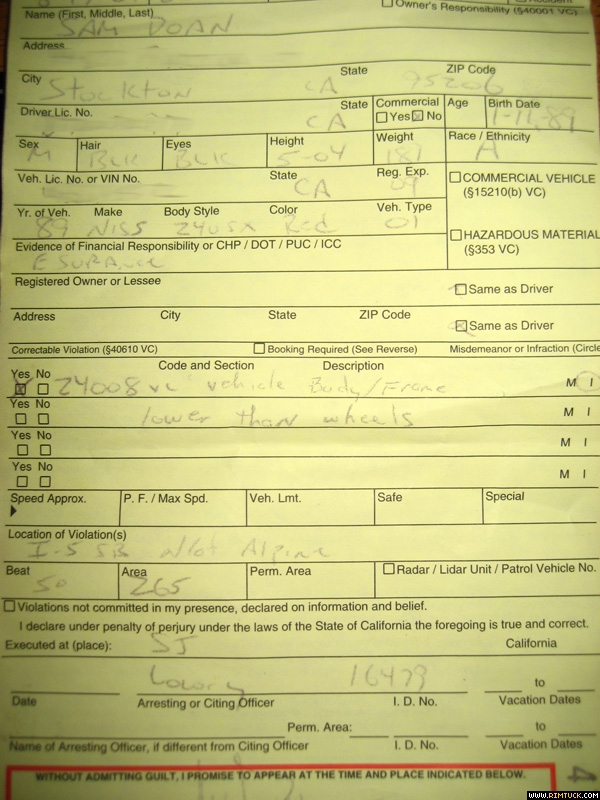 Name (First, Middle, Last) Owner's Responsibility (§40001 VC)
SAM DOAN
Address
City State ZIP Code
Stockton CA 95206
Driver Lic. No. State Commercial Age Birth Date
CA Yes No 1-11-89
Sex Hair Eyes Height Weight Race / Ethnicity
M BLK BLK 5-04 181 A
Veh. Lic. No. or VIN No. State Reg. Exp. COMMERCIAL VEHICLE
CA (§15210(b) VC)
Yr. of Veh. Make Body Style Color Veh. Type
89 NISS 240SX Red 01
HAZARDOUS MATERIAL
(§353 VC)
Evidence of Financial Responsibility or CHP / DOT / PUC / ICC
ESURANCE
Registered Owner or Lessee
Same as Driver
Address City State ZIP Code
Same as Driver
Correctable Violation (§40610 VC) Booking Required (See Reverse) Misdemeanor or Infraction (Circle
Yes No Code and Section Description
24008 VC Vehicle Body/Frame M I
Yes No
lower than wheels M I
Yes No
M I
Yes No
M I
Speed Approx. P. F. / Max Spd. Veh. Lmt. Safe Special
Location of Violation(s)
I-5 SB Alpine
Beat Area Perm. Area Radar / Lidar Unit / Patrol Vehicle No.
50 265
Violations not committed in my presence, declared on information and belief.
I declare under penalty of perjury under the laws of the State of California the foregoing is true and correct.
Executed at (place): SJ California
Lowry 16479 to
Date Arresting or Citing Officer I. D. No. Vacation Dates
Perm. Area: to
Name of Arresting Officer, if different from Citing Officer I. D. No. Vacation Dates
WITHOUT ADMITTING GUILT, I PROMISE TO APPEAR AT THE TIME AND PLACE INDICATED BELOW.
WWW.RIMTUCK.COM